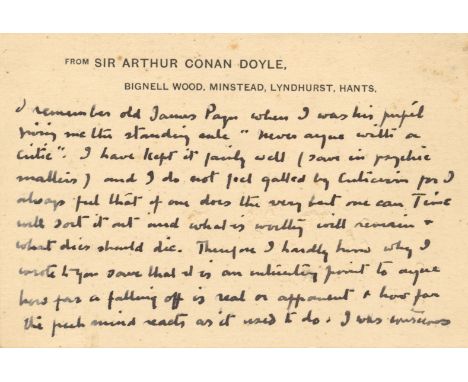 FROM SIR ARTHUR CONAN DOYLE,
BIGNELL WOOD, MINSTEAD, LYNDHURST, HANTS.
I remember old James Payn when I was his pupil
giving me the standing rule "Never argue with a
Critic". I have kept it fairly well (save in psychic
matters) and I do not feel galled by Criticism for I
always feel that if one does the very best one can Time
will sort it out and what is worthy will remain +
what dies should die. Therefore I hardly know why I
wrote to you save that it is an interesting point to argue
how far a falling off is real or apparent + how far
the mind reacts as it used to do. I was conscious